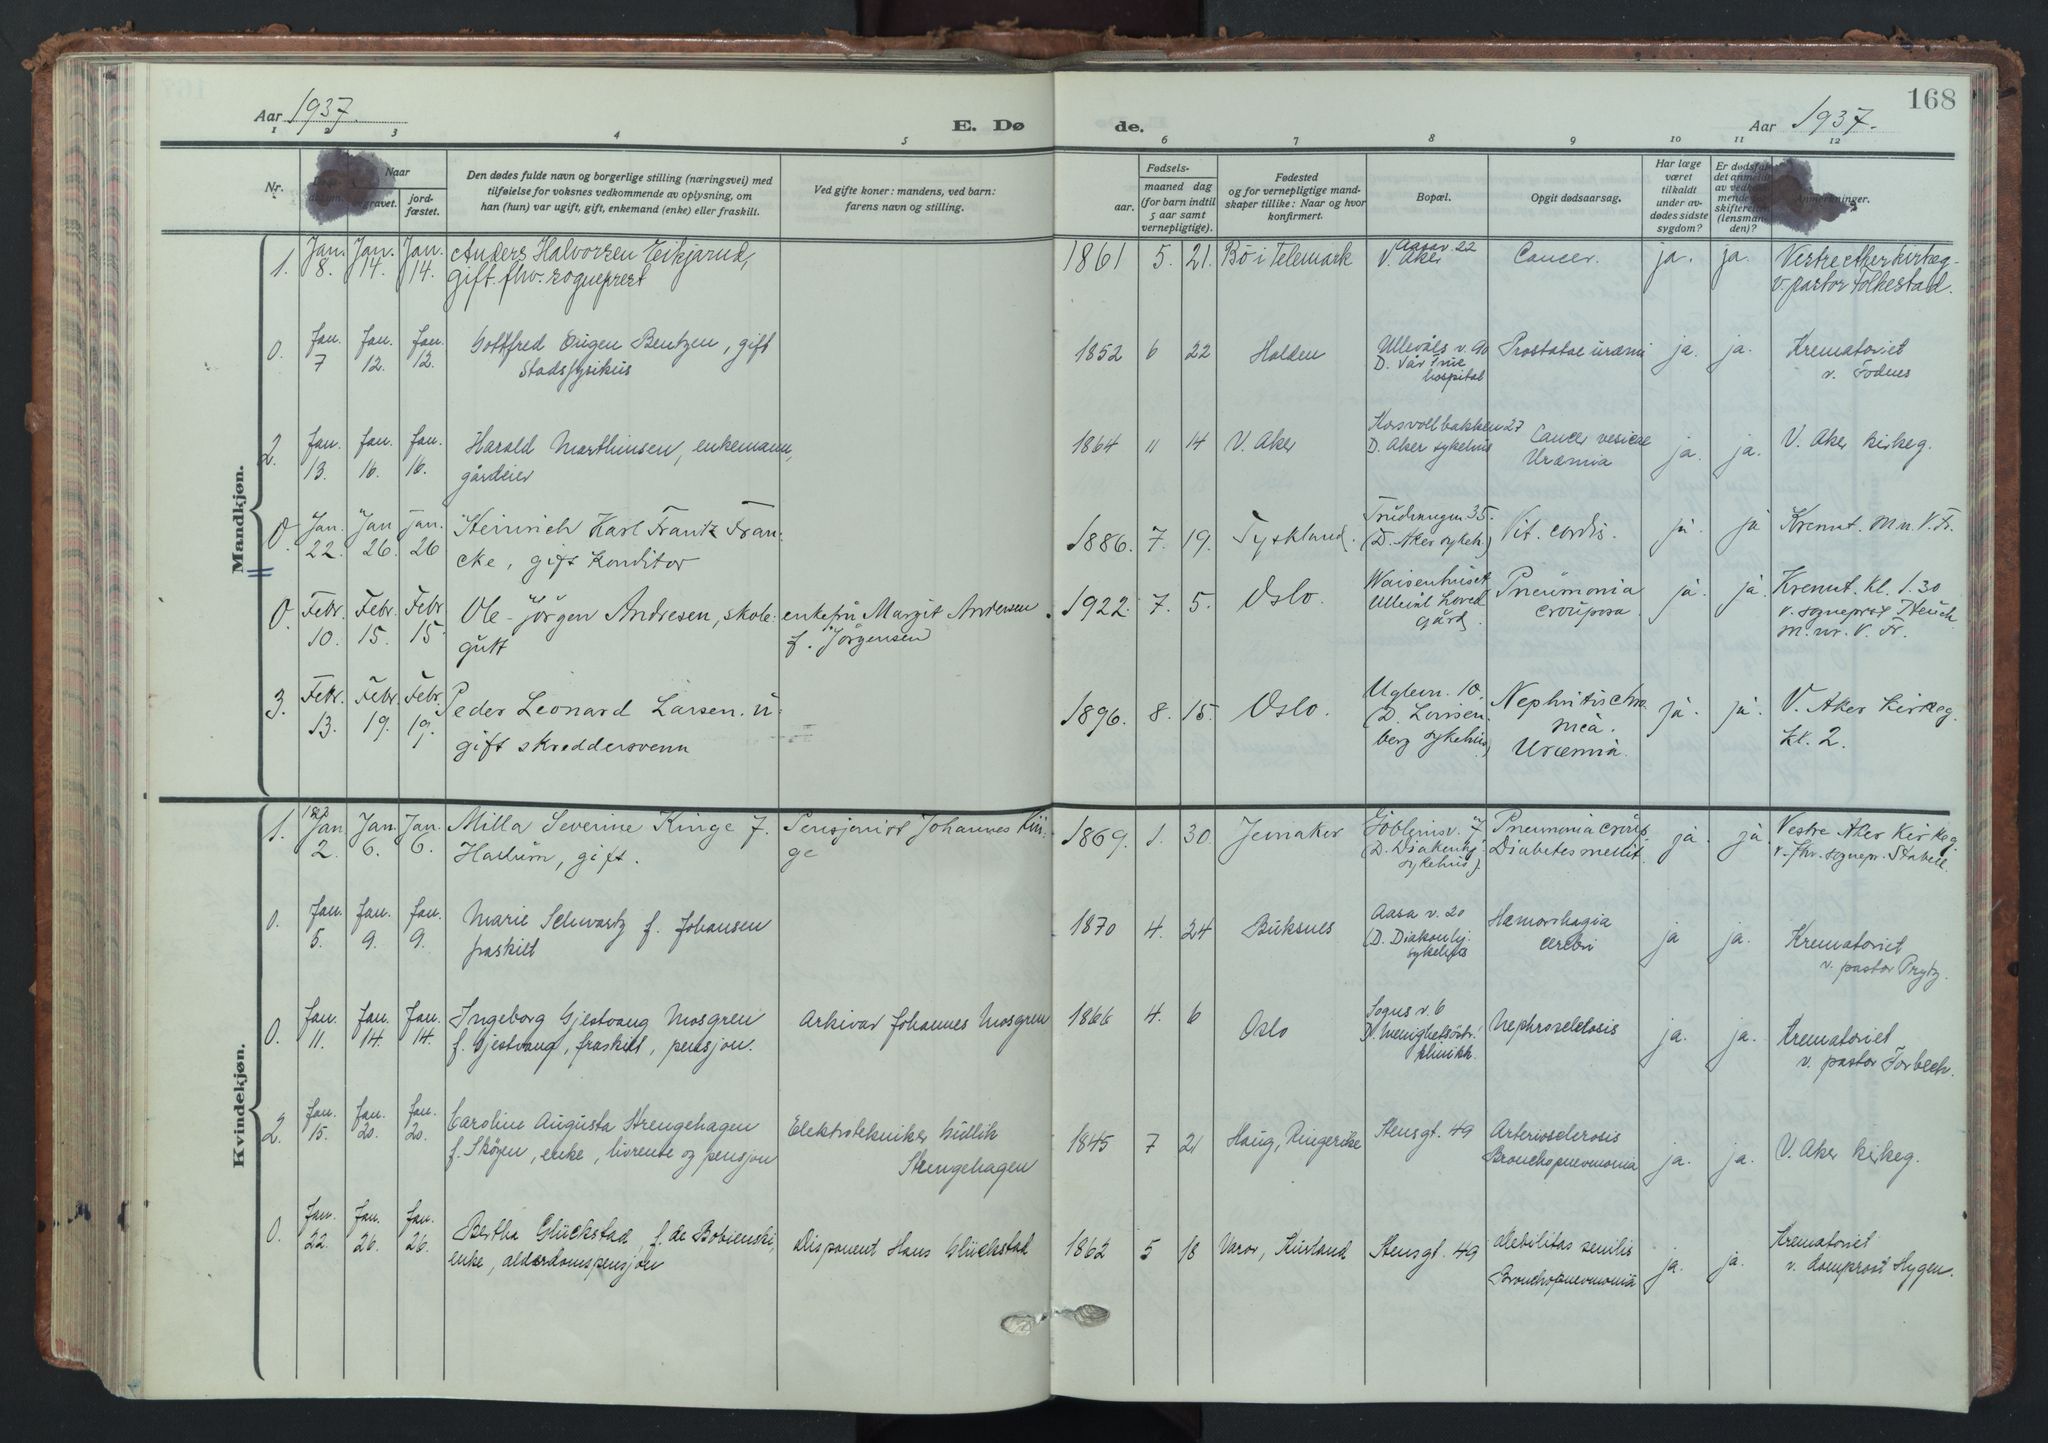 168
Aar 1937.
E. Dø
de.
Aar 1937.
1 2 3 4 5 6 7 8 9 10 11 12
Nr.
Naar
jord-
fæstet.
Den dødes fulde navn og borgerlige stilling (næringsvei) med
tilføielse for voksnes vedkommende av oplysning, om
han (hun) var ugift, gift, enkemand (enke) eller fraskilt.
Ved gifte koner: mandens, ved barn:
farens navn og stilling.
Fødsels-
aar.
maaned dag
(for barn indtil
5 aar samt
vernepligtige).
Fødested
og for vernepligtige mand-
skaper tillike: Naar og hvor
konfirmert.
Bopæl.
Opgit dødsaarsag.
Har læge
været
tilkaldt
under av-
dødes sidste
sygdom?
Er dødsfal-
det anmeldt
av vedkom-
mende for
skifteretten
(lensman-
den)?
Anmerkninger.
Mandkjøn.
1. Jan. 8. Jan. 14. Jan. 14. Anders Halvorsen Eikjarud, 1861 5. 21. Bø i Telemark Aasav. 22 Cancer. ja. ja. Vestre Aker kirkeg.
gift. fhv. sogneprest V. Aker v. pastor Folkestad.
0. Jan. 7 Jan. 12. Jan. 12. Gottfred Eugen Bentzen, gift 1852 6 22 Halden Ullevåls v. 90 Prostatae uræmi ja. ja. Krematoriet
Stadsfysikus D. Vår Frue v. Fodnes
hospital
2. Jan. 13. Jan. 16. Jan. 16. Harald Marthinsen, enkemann, 1864 11 14 V. Aker Korsvollbakken 27 Cancer vesicae ja. ja. V. Aker kirkeg.
gårdeier D. Aker sykehus Uræmia
0. Jan. 22. Jan 26. Jan. 26 Heinrich Karl Frantz Fran- 1886. 7. 19. Tyskland. 35. Vit. cordis. ja. ja Kremat. m.n. V. Fr.
cke, gift konditor (D. Aker sykeh.)
0. Febr. 10. Febr. 15. Febr. 15. Ole-Jörgen Andresen, skole- enkefru Margit Andersen 1922. 7. 5. Oslo. Waisenhuset Pneumonia ja. ja. Kremat. kl. 1.30
gutt f. Jörgensen Ullevål Hoved crouposa v. sogneprest Heuch
gård m. nr. V. Fr.
3. Febr. 13. Febr. 19. Febr. 19. Peder Leonard Larsen. u- 1896. 8. 15. Oslo. Uglevn. 10. Nephritis chro ja. ja. V. Aker kirkeg.
gift skreddersvenn (D. Lovisen nica. kl. 2.
berg sykehus) Uræmia.
Kvindekjøn.
1. Jan. 2. Jan. 6. Jan. 6. Milla Severine Kinge f. Pensjonist Johannes Kin- 1869. 1. 30. Jevnaker v. 7 Pneumonia croup. ja. ja. Vestre Aker kirkeg.
Hallum, gift. ge (D. Diakonhj. Diabetes mellit. v. fhv. sognepr. Stabell
sykehus).
0. Jan. 5. Jan. 9. Jan. 9. Marie Schwartz f. Johansen 1870 4. 24 Buksnes Aasa v. 20 Hæmorrhagia ja ja. Krematoriet
fraskilt (D. Diakonhj. cerebri v. pastor Prytz.
sykehus
0. Jan. 11. Jan. 14. Jan. 14. Ingeborg Gjestvang Mosgren Arkivar Johannes Mosgren 1866 4. 6 Oslo Sogns v. 6 Nephrosclerosis ja. ja. Krematoriet
f. Gjestvang, fraskilt, pensjon. D. Menighetssöstr. v. pastor Forbech.
klinikk.
2. Jan. 15. Jan. 20. Jan. 20. Caroline Augusta Strengehagen Elektrotekniker Gullik 1845 7 21 Haug, Ringerike Stensgt. 49 Arteriosclerosis ja. ja. V. Aker kirkeg.
f. Skögen, enke, livrente og pensjon Strengehagen Bronchopneumonia
0. Jan. 22. Jan. 26. Jan. 26. Bertha Glückstad f. de Bobienski, Disponent Hans Glückstad 1862 5 18 Stensgt. 49 Debilitas senilis ja. ja. Krematoriet
enke, alderdomspensjon Bronchopneumonia v. domprost Hygen.